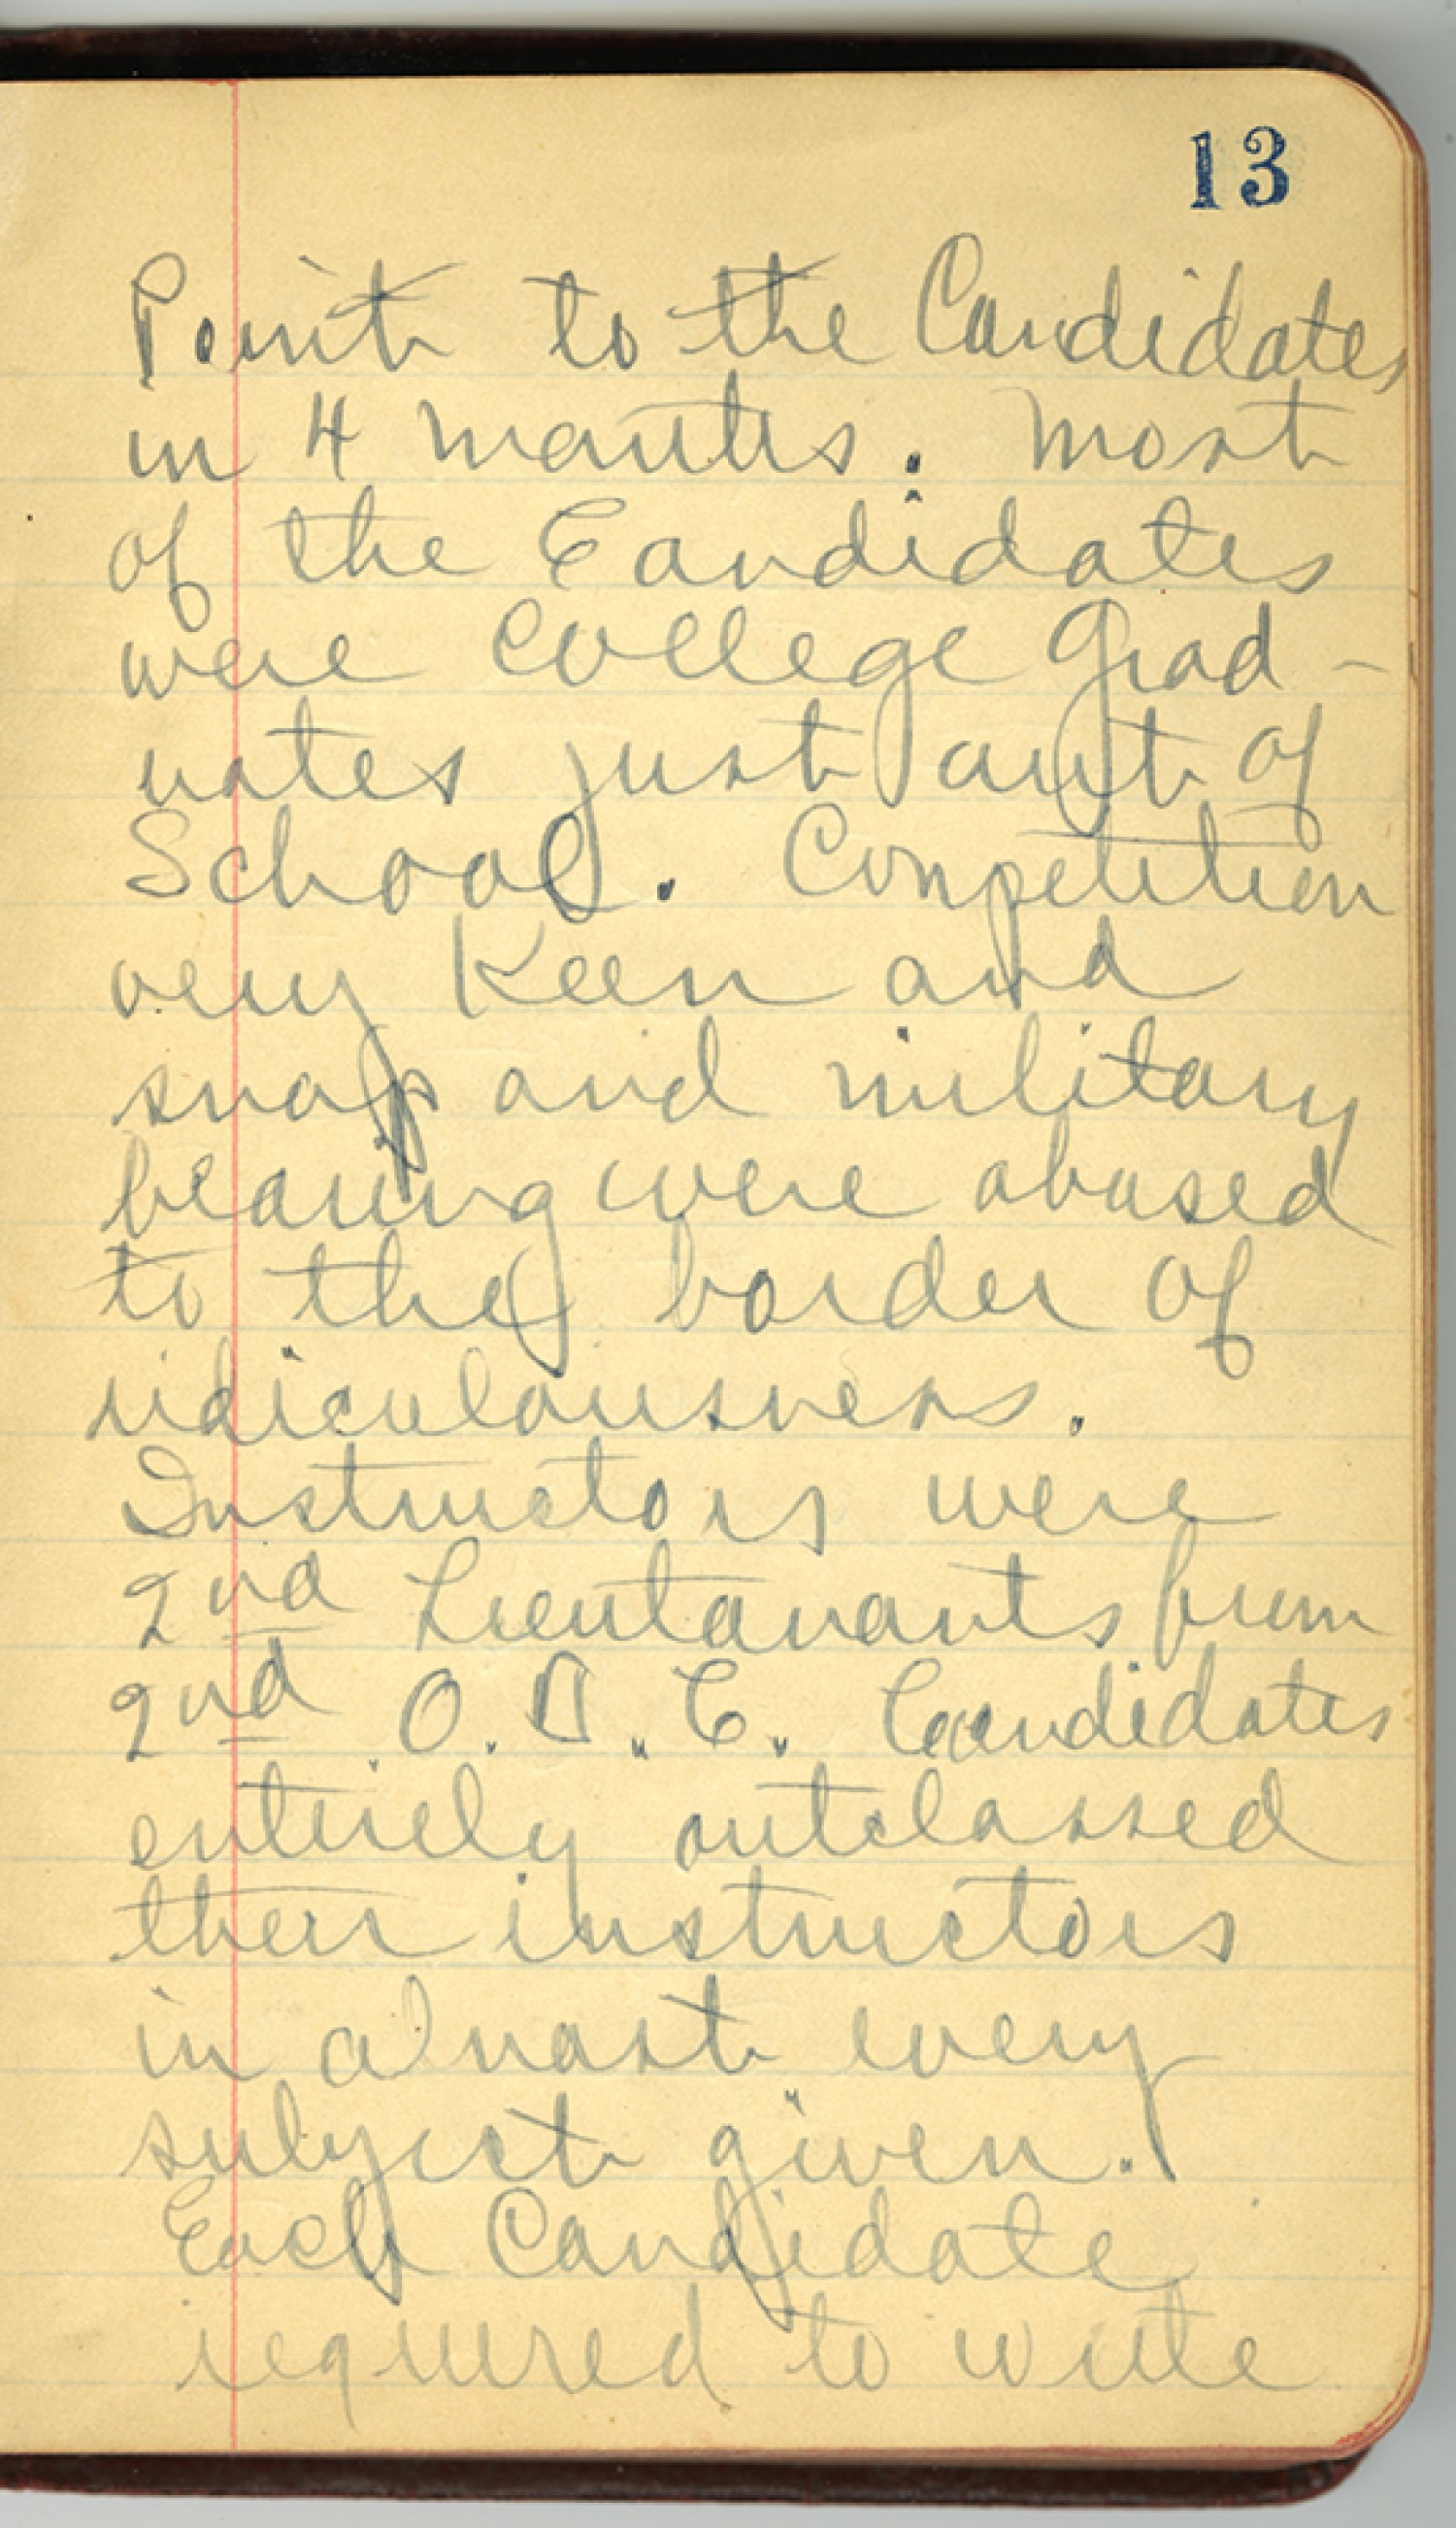 13
Point to the Candidates
in 4 months. Most
of the Candidates
were College Grad-
uates just out of
School. Competition
very Keen and
snap and military
bearing were abused
to the border of
ridiculousness.
Instructors were
2nd Lieutanants from
2nd O. T. C. Candidates
entirely outclassed
their instructors
in almost every
subject given.
Each Candidate
required to write